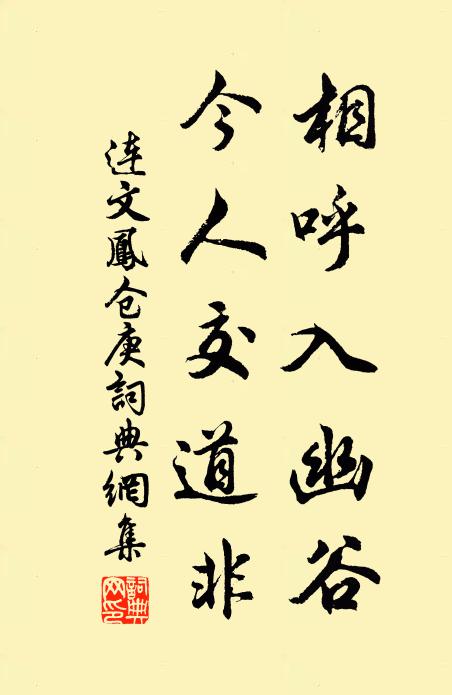 相呼入幽谷
今人交道非
連文鳳仓庚詞典網集
詞典網印